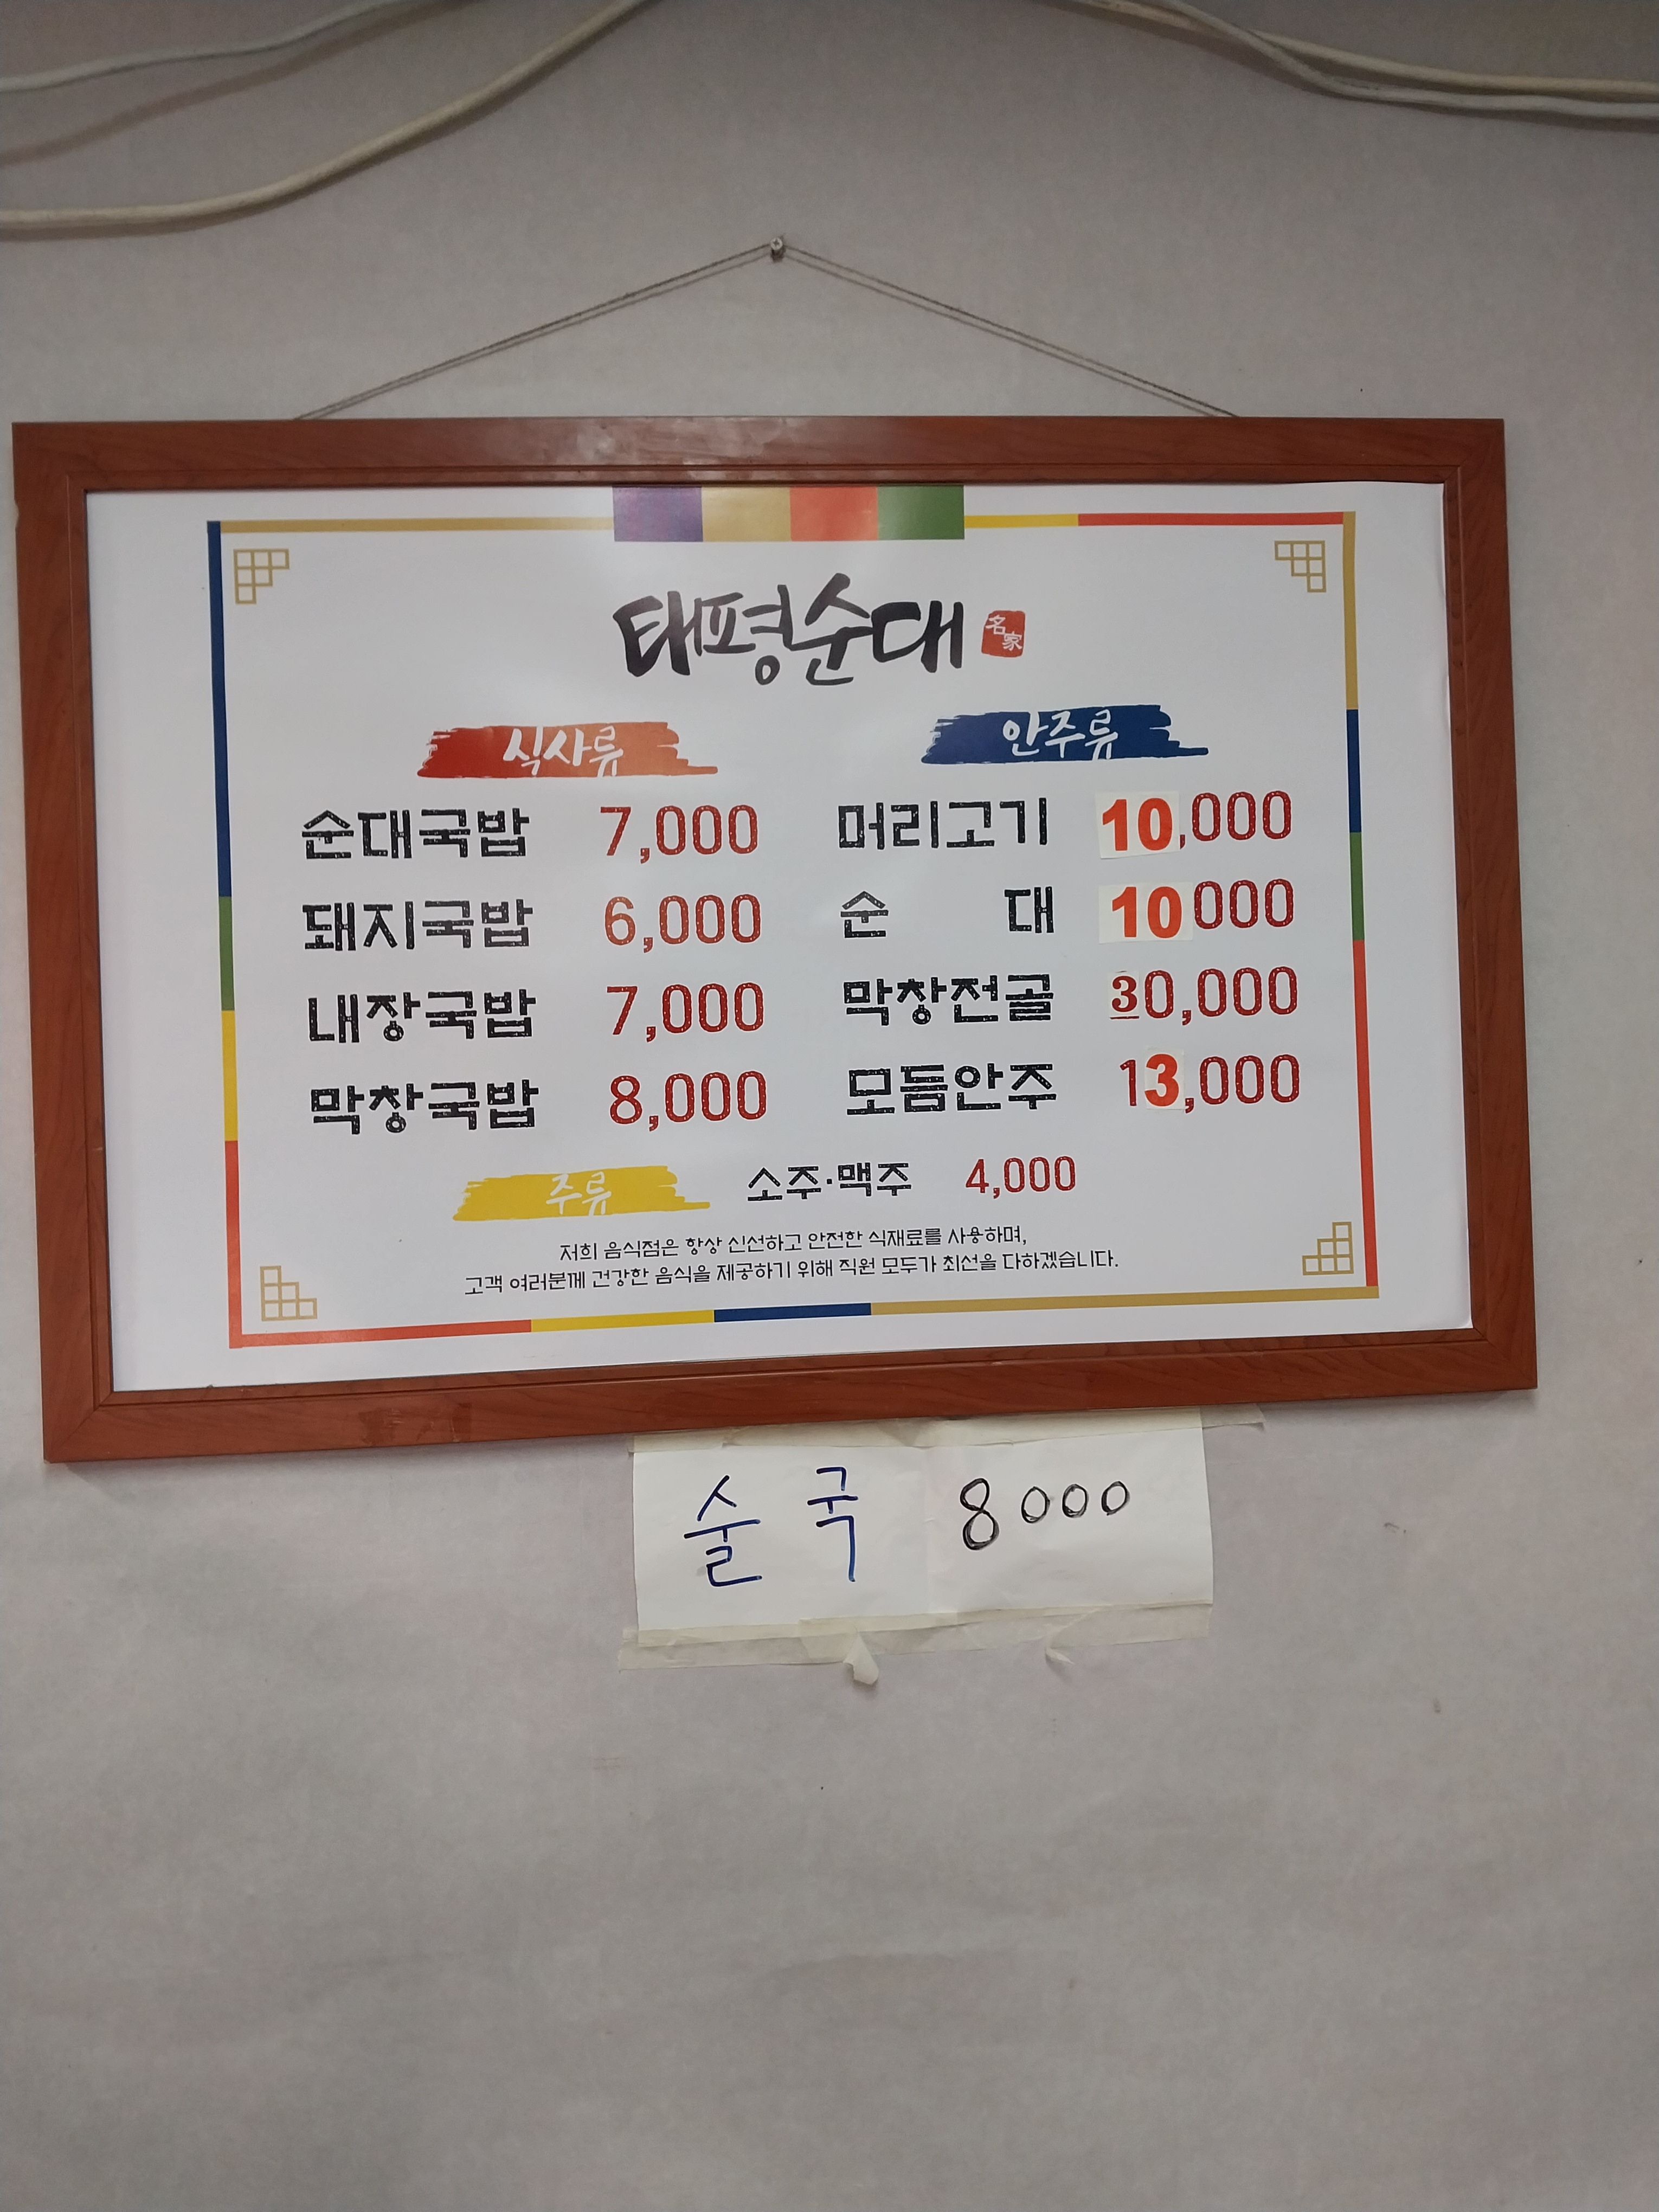 태평순대 名家
식사류
순대국밥 7,000
돼지국밥 6,000
내장국밥 7,000
막창국밥 8,000
안주류
머리고기 10,000
순 대 10 000
막창전골 30,000
모듬안주 13,000
주류 소주·맥주 4,000
저희 음식점은 항상 신선하고 안전한 식재료를 사용하며,
고객 여러분께 건강한 음식을 제공하기 위해 직원 모두가 최선을 다하겠습니다.
술국 8000